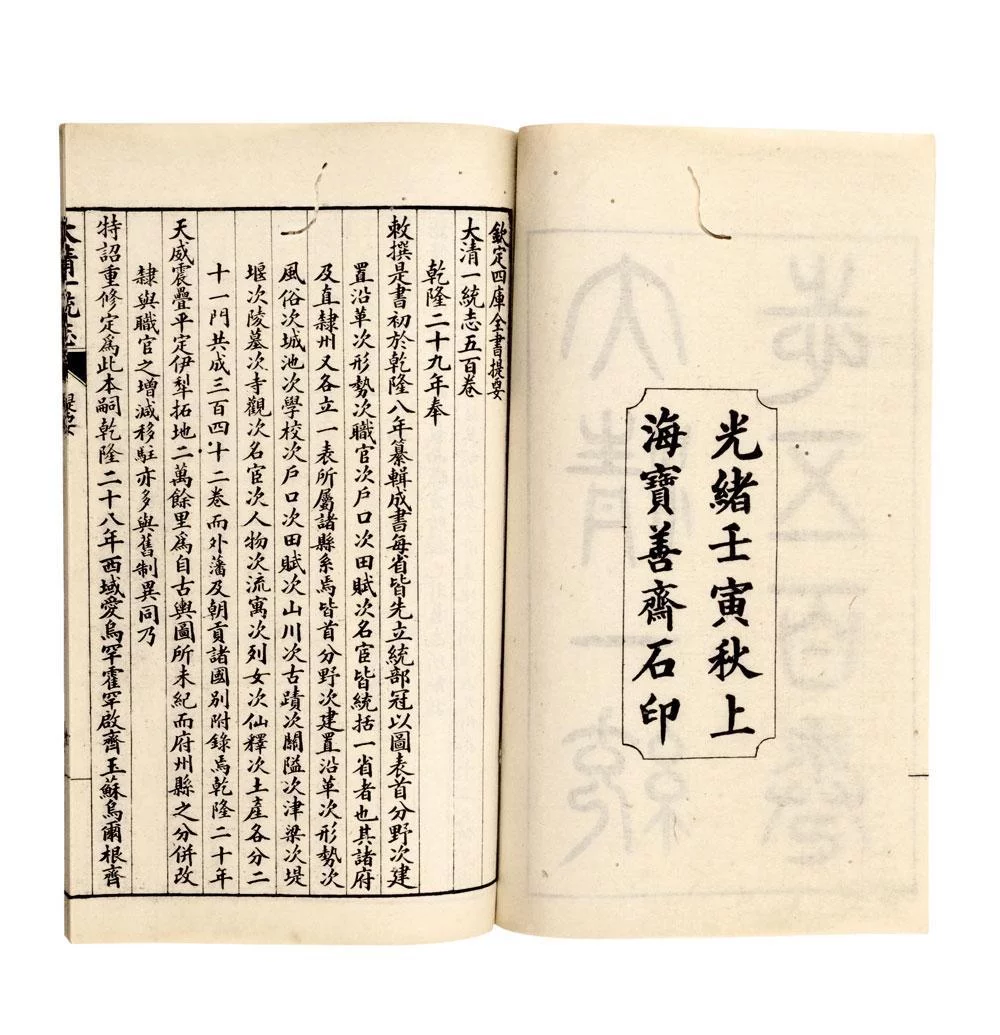 光緒壬寅秋上
海寶善齋石印
欽定四庫全書提要
大清一統志五百卷
乾隆二十九年奉
敕撰是書初於乾隆八年纂輯成書每省皆先立統部冠以圖表首分野次建
置沿革次形勢次職官次戶口次田賦次名宦皆統括一省者也其諸府
及直隸州又各立一表所屬諸縣系焉皆首分野次建置沿革次形勢次
風俗次城池次學校次戶口次田賦次山川次古蹟次關隘次津梁次堤
堰次陵墓次寺觀次名宦次人物次流寓次列女次仙釋次土產各分二
十一門共成三百四十二卷而外藩及朝貢諸國別附錄焉乾隆二十年
天威震疊平定伊犂拓地二萬餘里爲自古輿圖所未紀而府州縣之分併改
隸與職官之增減移駐亦多與舊制異同乃
特詔重修定爲此本嗣乾隆二十八年西域愛烏罕霍罕啟齊玉蘇烏爾根齊
大清一統志 提要